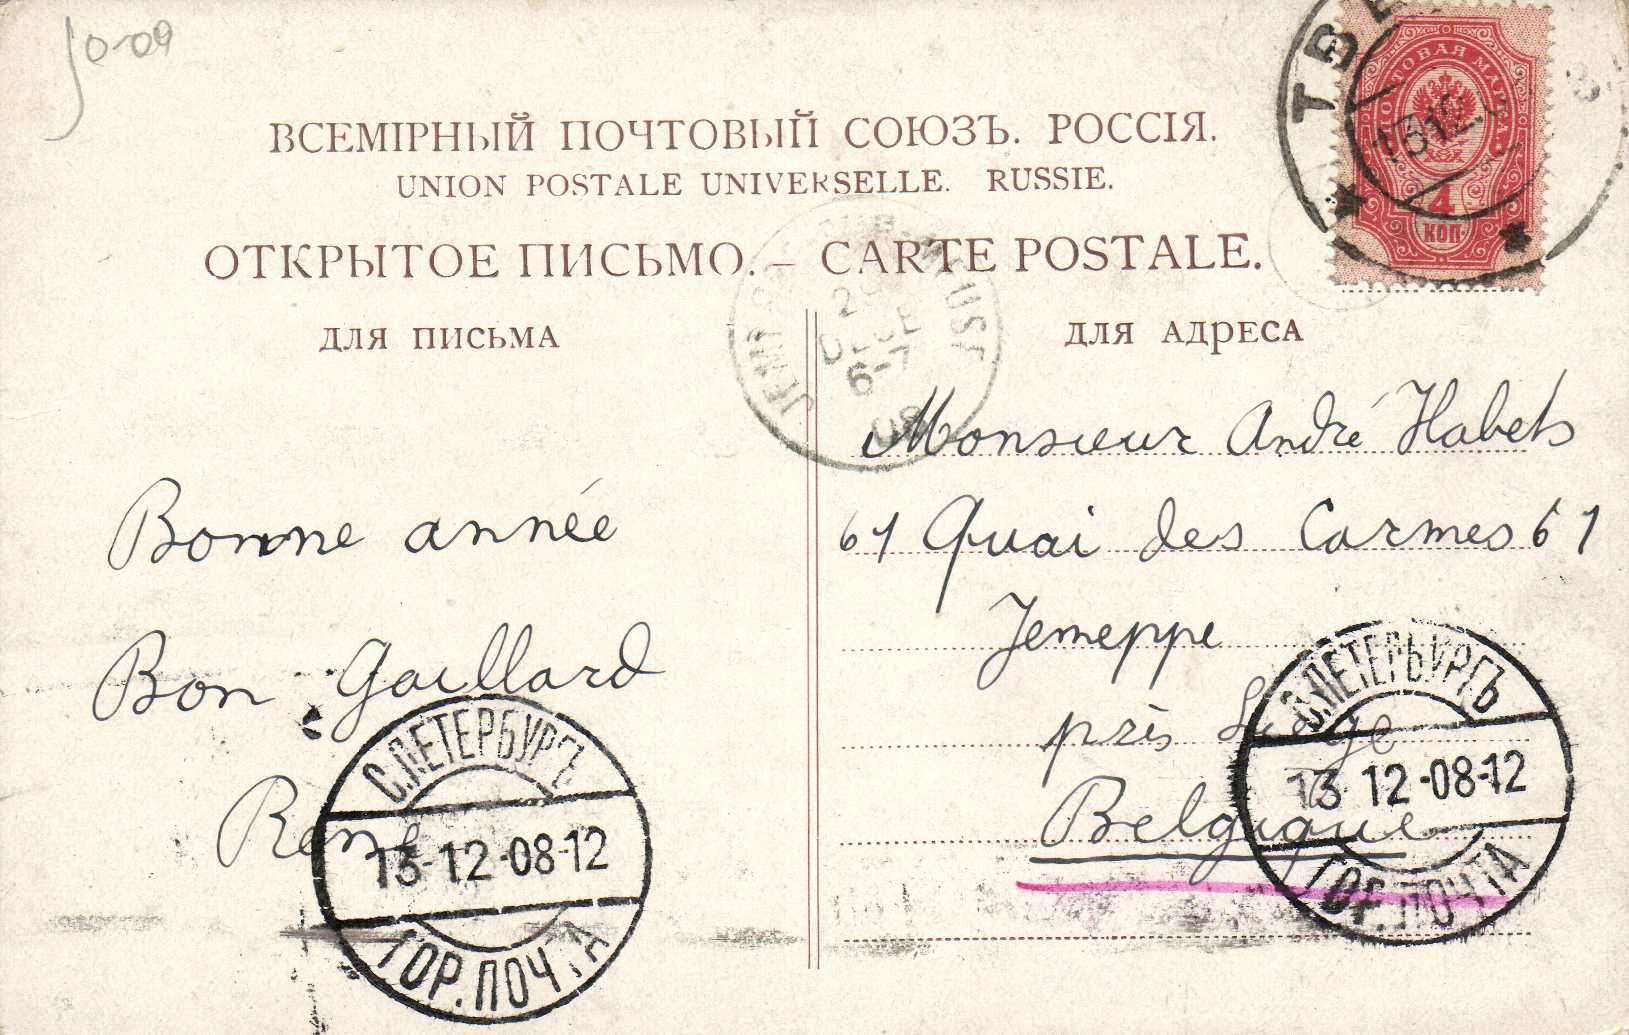 ВСЕМІРНЫЙ ПОЧТОВЫЙ СОЮЗЪ. РОССІЯ.
UNION POSTALE UNIVERSELLE. RUSSIE.
ОТКРЫТОЕ ПИСЬМО. – CARTE POSTALE.
ДЛЯ ПИСЬМА
ДЛЯ АДРЕСА
ПОЧТОВАЯ МАРКА
4
КОП
DECE
6-7
08
Bonne année
Bon Gaillard
René
Monsieur André Habets
61 Quai des Carmes 61
Jemeppe
près Liége
Belgique
С.ПЕТЕРБУРГЪ
13-12-08-12
ГОР.ПОЧТА
С.ПЕТЕРБУРГЪ
13 12-08-12
ГОР.ПОЧТА